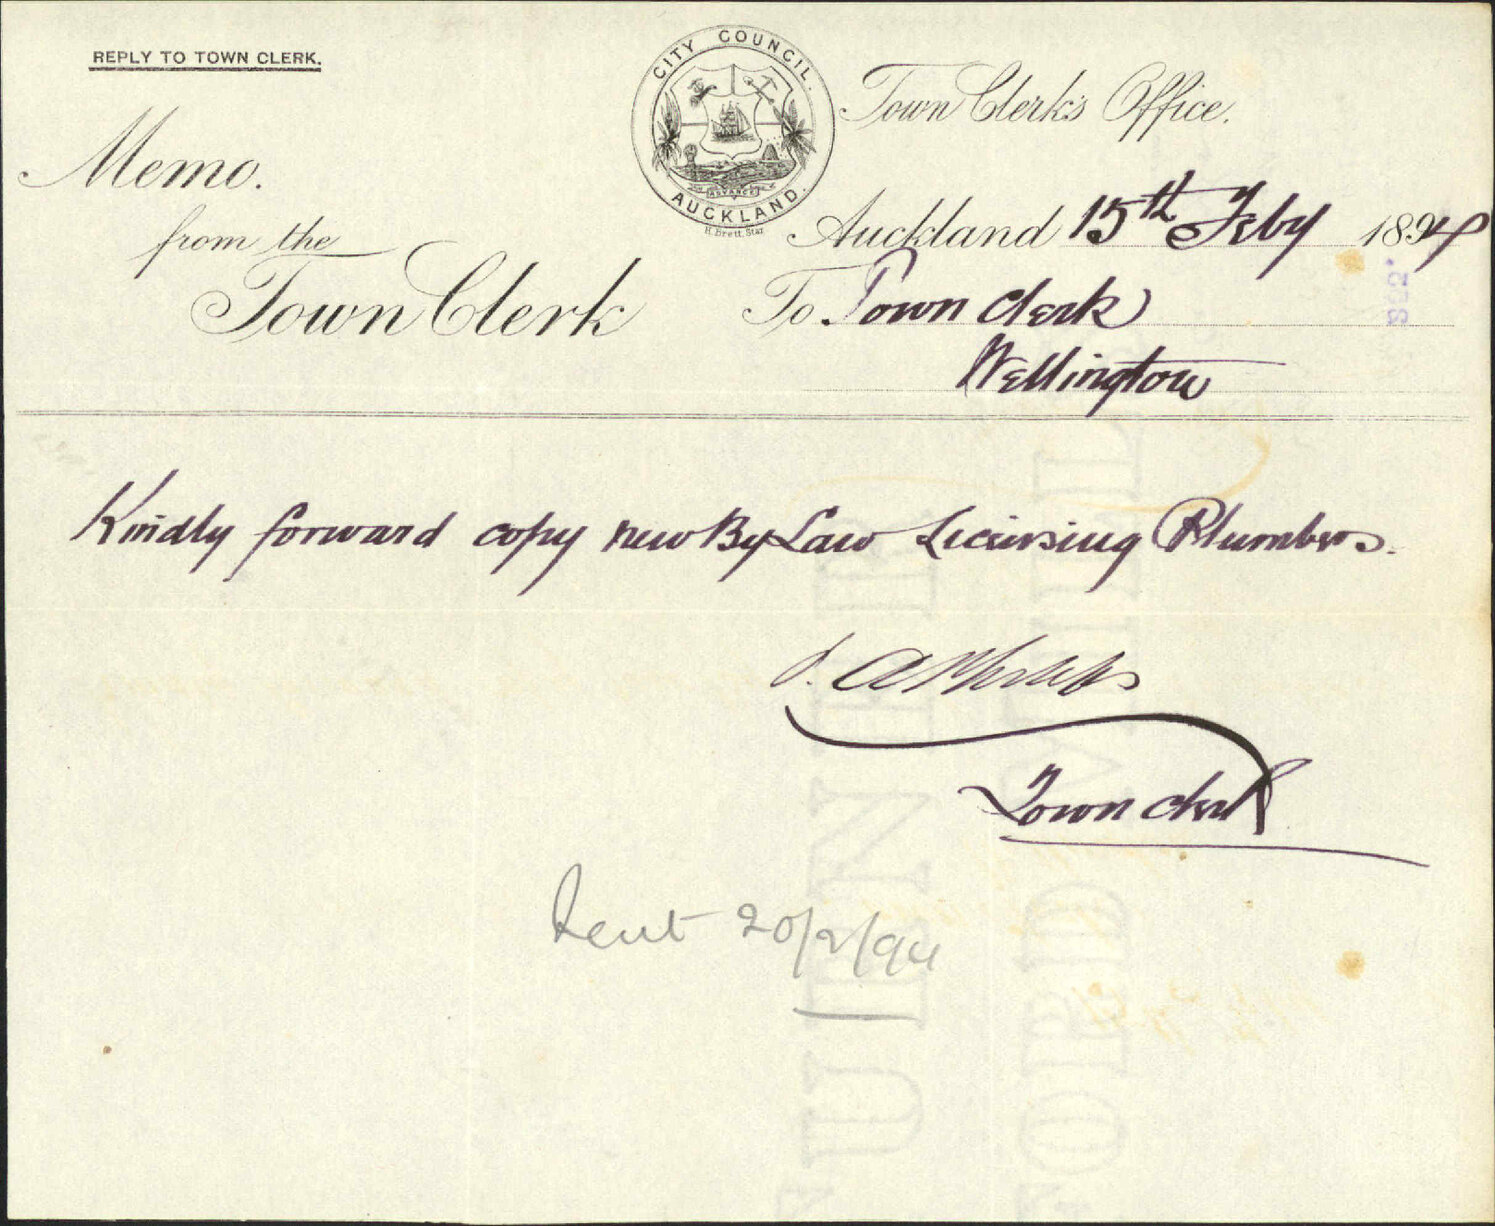 REPLY TO TOWN CLERK.
CITY COUNCIL.
ADVANCE
AUCKLAND.
H. Brett, Star
Memo.
from the
Town Clerk
Town Clerk's Office.
Auckland 15th Feby 1894
To Town Clerk
Wellington
Kindly forward copy new By Law Licensing Plumbers.
Town Clerk
Sent 20/2/94